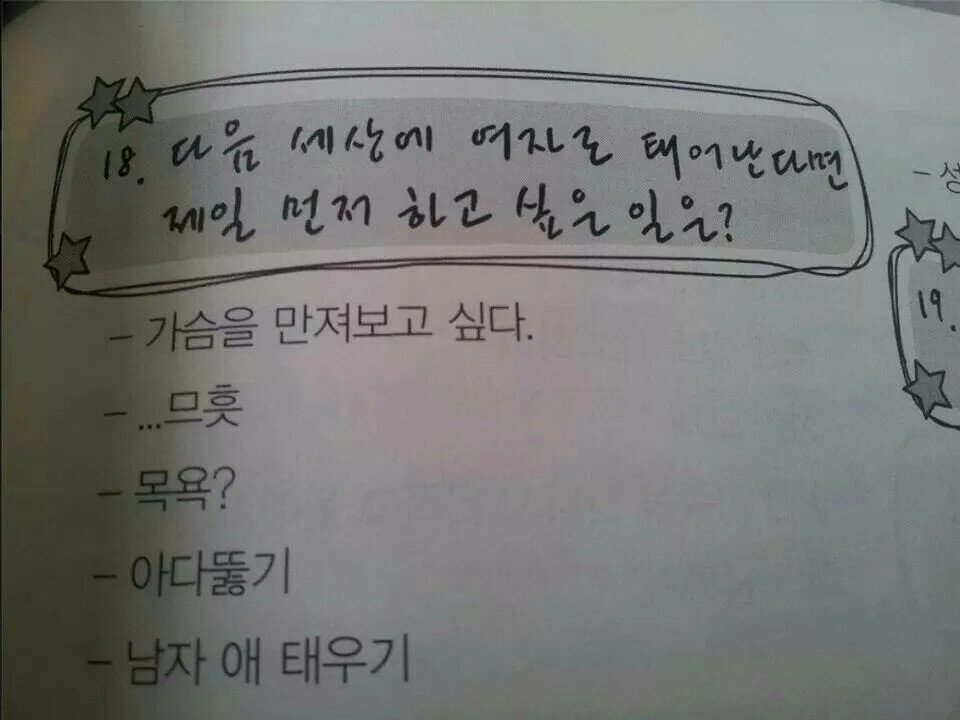 18. 다음 세상에 여자로 태어난다면
제일 먼저 하고 싶은 일은?
- 가슴을 만져보고 싶다.
- ...므흣
- 목욕?
- 아다뚫기
- 남자 애 태우기
- 성
19.